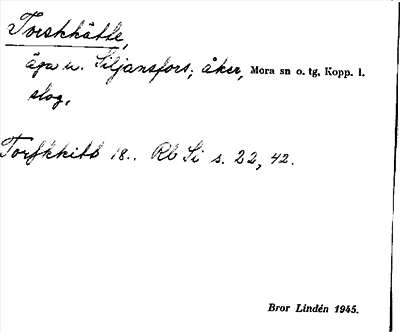 Torskhätte,
äga u. Siljansfors; åker, Mora sn o. tg, Kopp. l.
slog,
Torskkitt 18.. Rb Si s. 22, 42.
Bror Lindén 1945.